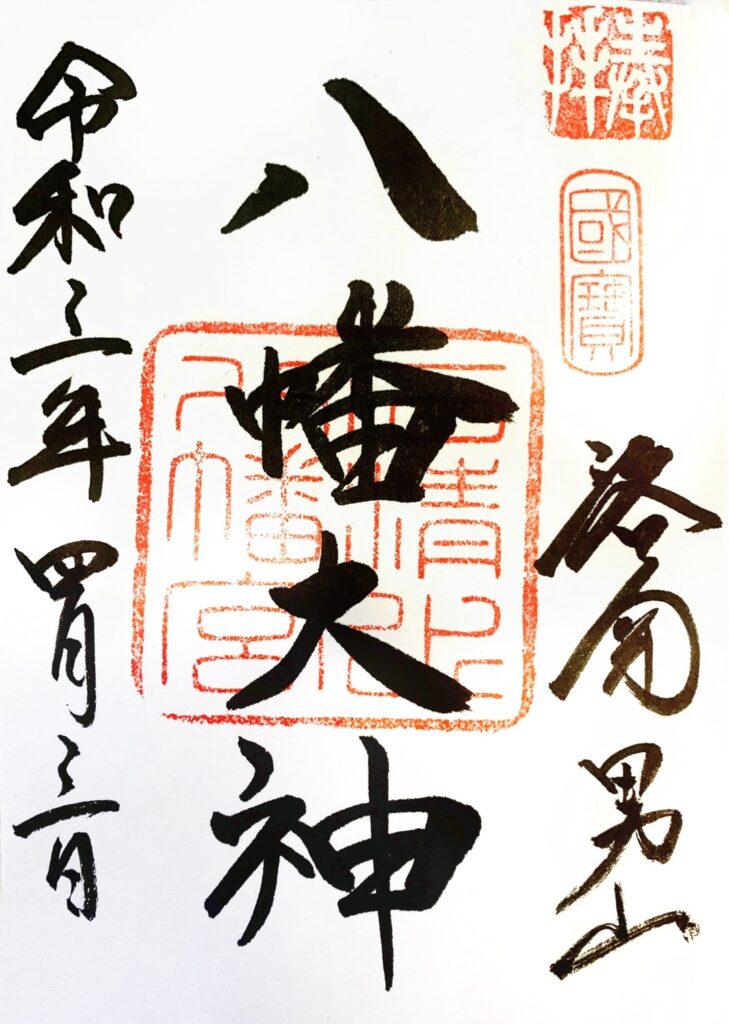 奉拜
國寶
洛南 男山
八幡大神
八幡宮
令和三年 四月三日